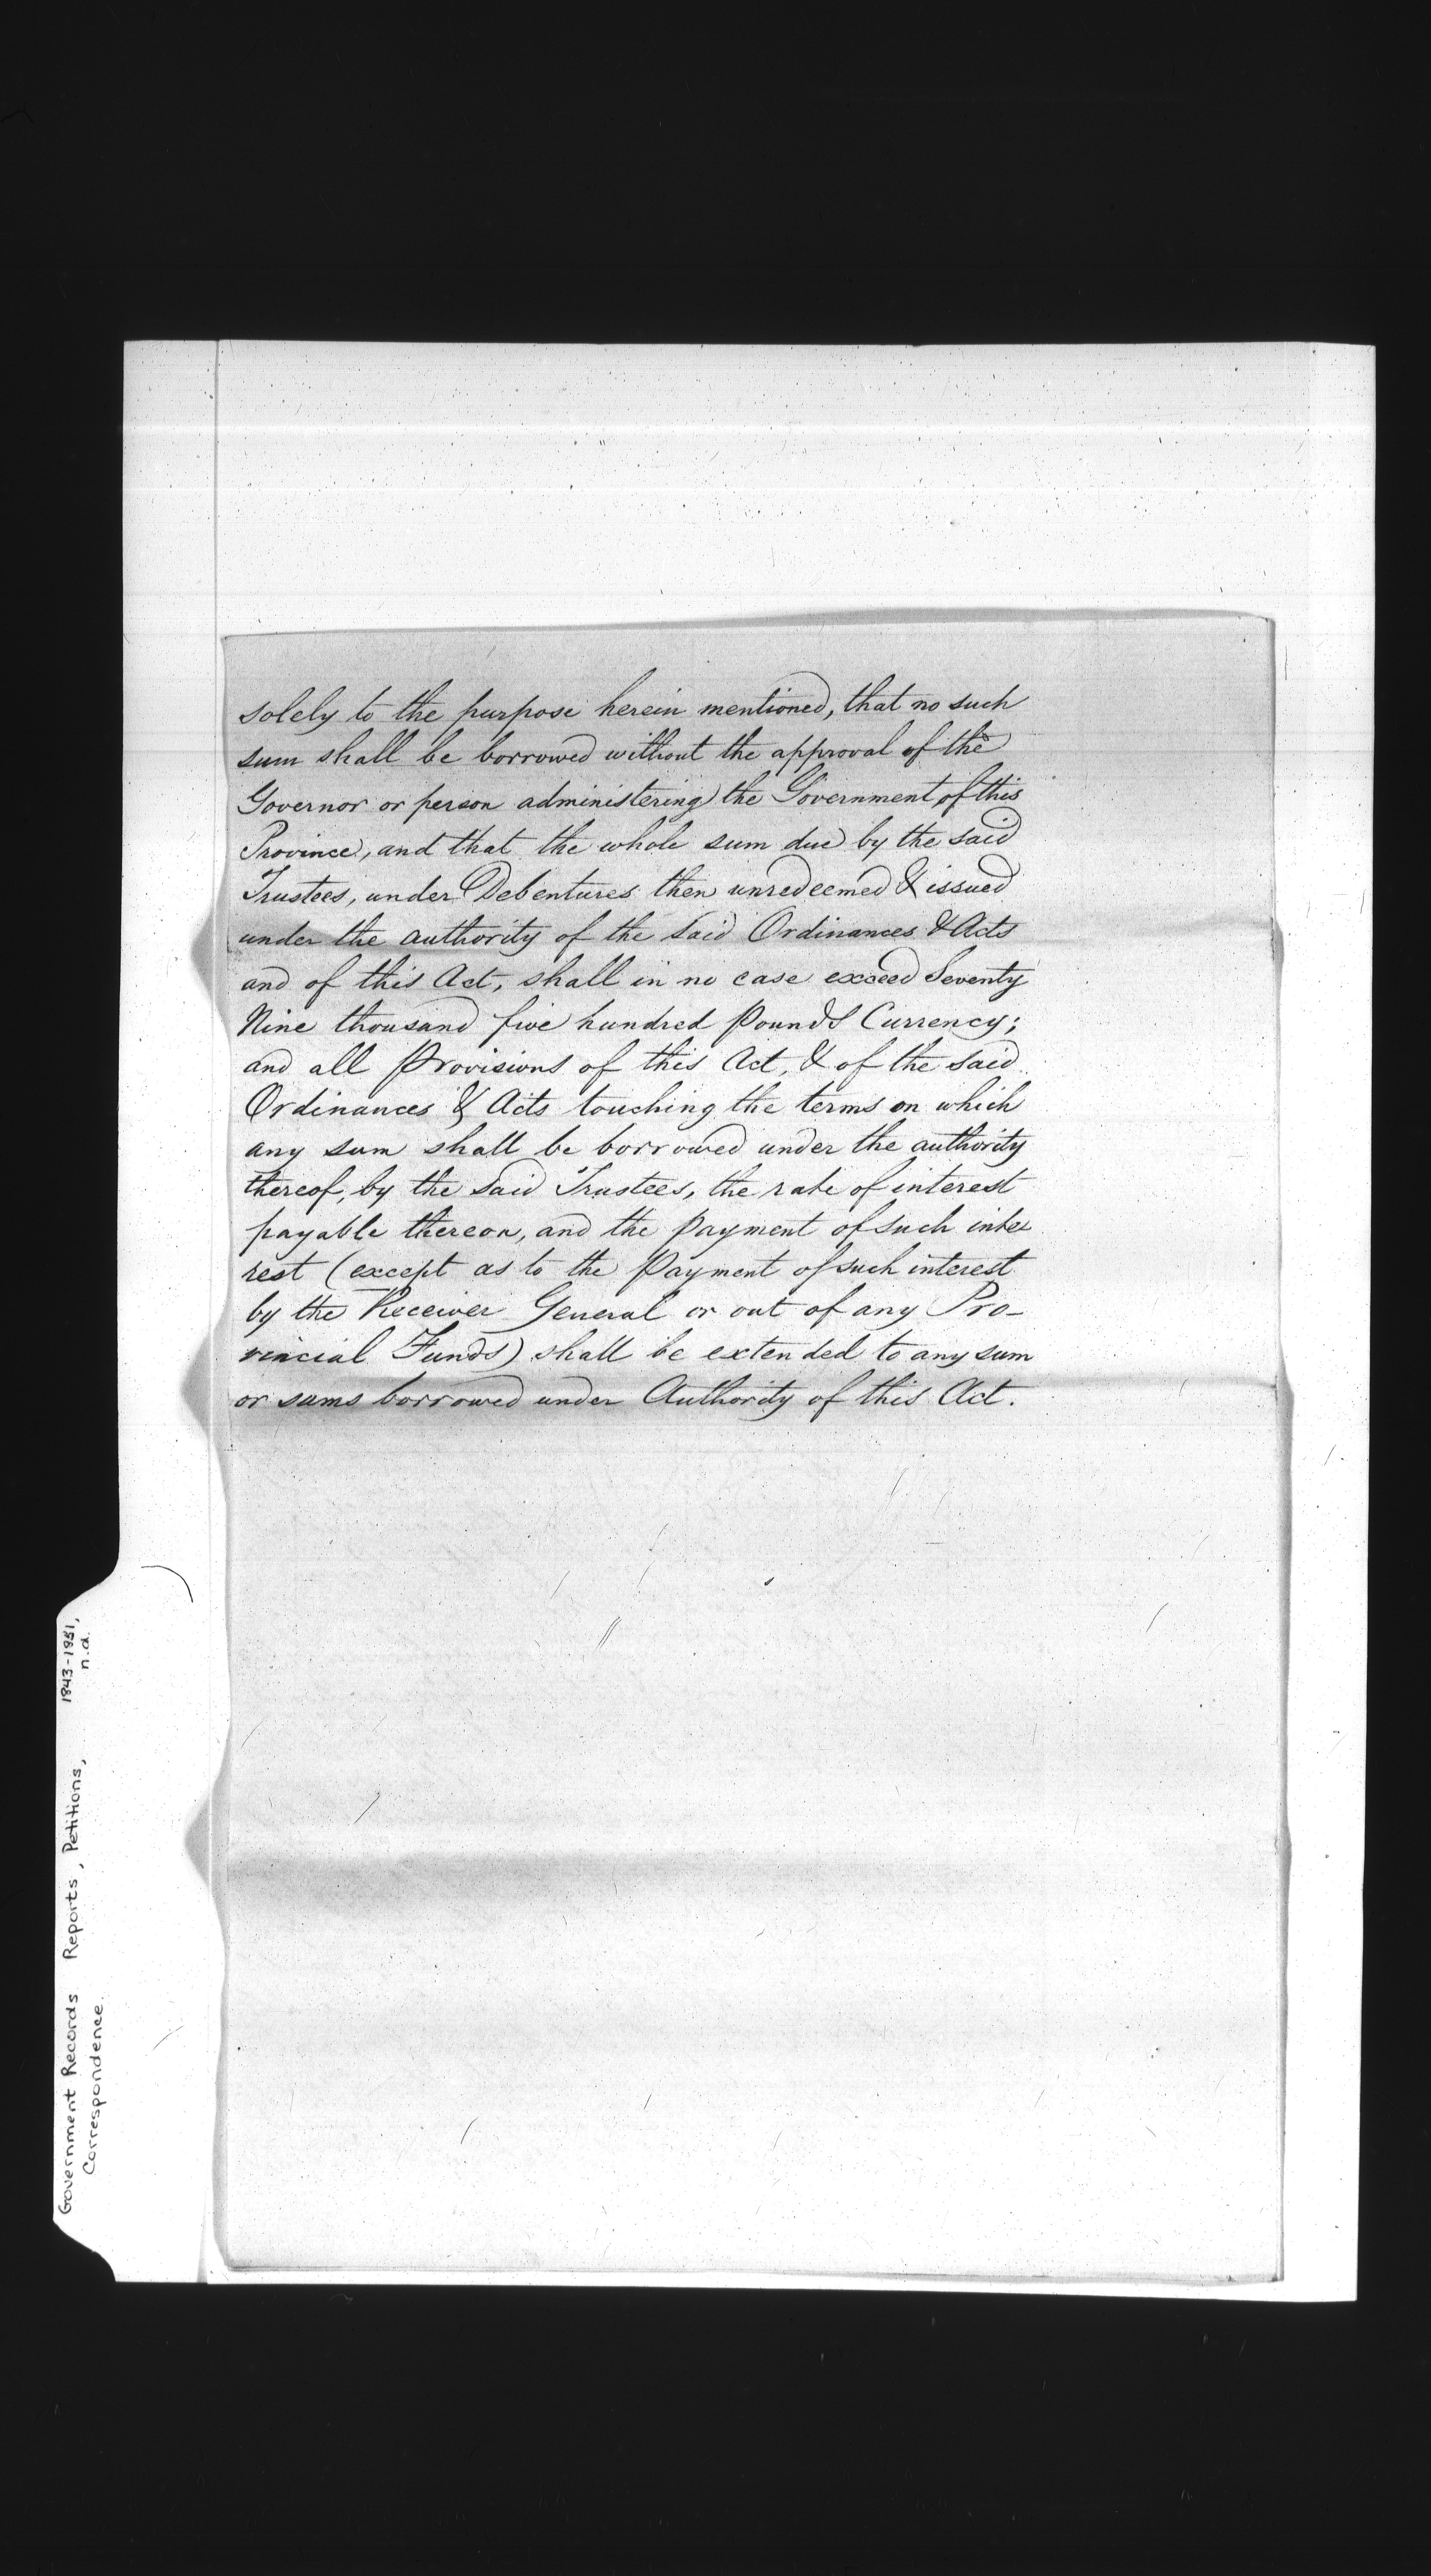 solely to the purpose herein mentioned, that no such
sum shall be borrowed without the approval of the
Governor or person administering the Government of this
Province, and that the whole sum due by the said
Trustees, under Debentures then unredeemed & issued
under the authority of the said Ordinances & Acts
and of this Act, shall in no case exceed Seventy
Nine thousand five hundred Pounds Currency;
and all Provisions of this Act, & of the said
Ordinances & Acts touching the terms on which
any sum shall be borrowed under the authority
thereof, by the said Trustees, the rate of interest
payable thereon, and the payment of such inte
rest (except as to the Payment of such interest
by the Receiver General or out of any Pro-
vincial Funds) shall be extended to any sum
or sums borrowed under Authority of this Act.
Government Records Reports, Petitions, 1843-1951,
Correspondence. n.d.